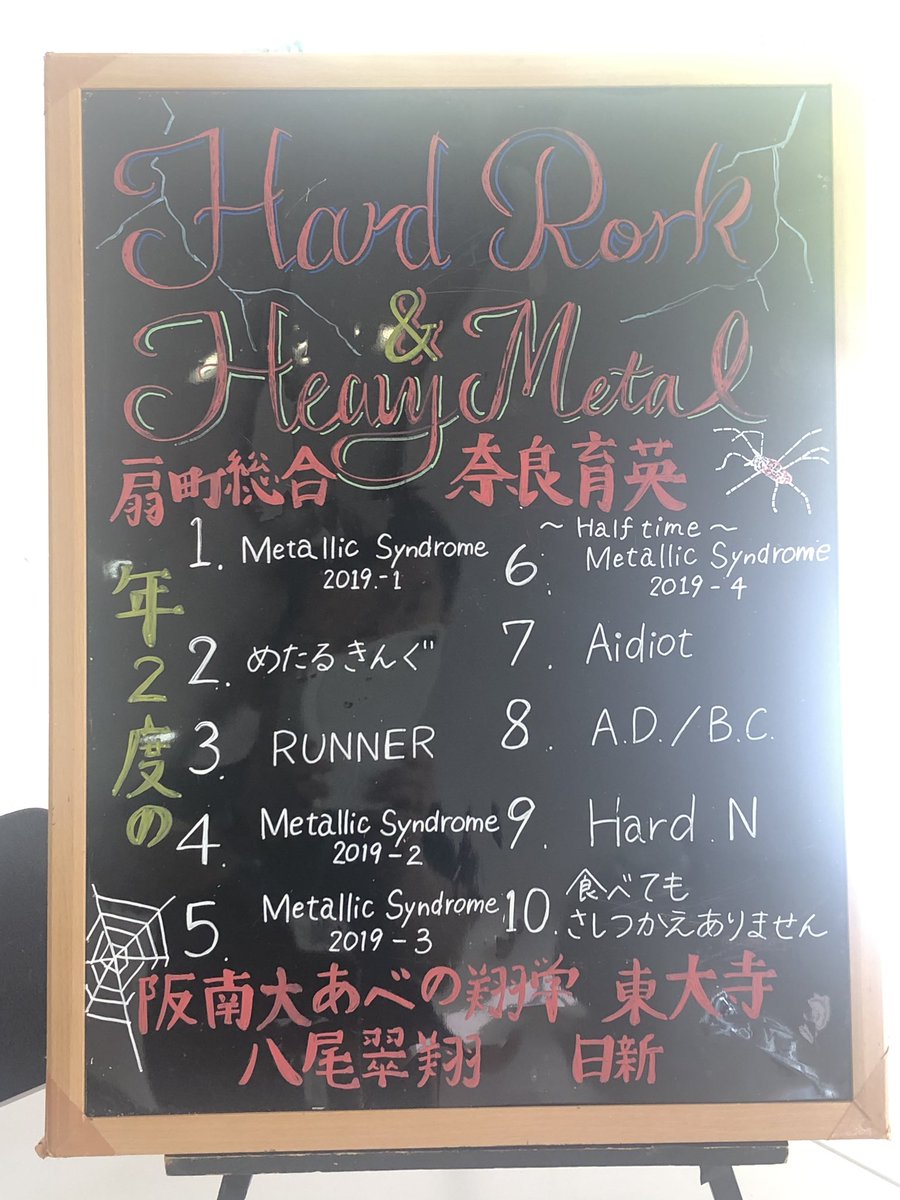 Hard Rork
&
Heavy Metal
扇町総合 奈良育英
年2度の
1. Metallic Syndrome
2019.-1
2. めたるきんぐ
3. RUNNER
4. Metallic Syndrome
2019-2
5. Metallic Syndrome
2019-3
~ Half time ~
6. Metallic Syndrome
2019-4
7. Aidiot
8. A.D./B.C.
9. Hard N
10. 食べても
さしつかえありません
阪南大あべの翔学 東大寺
八尾翠翔 日新